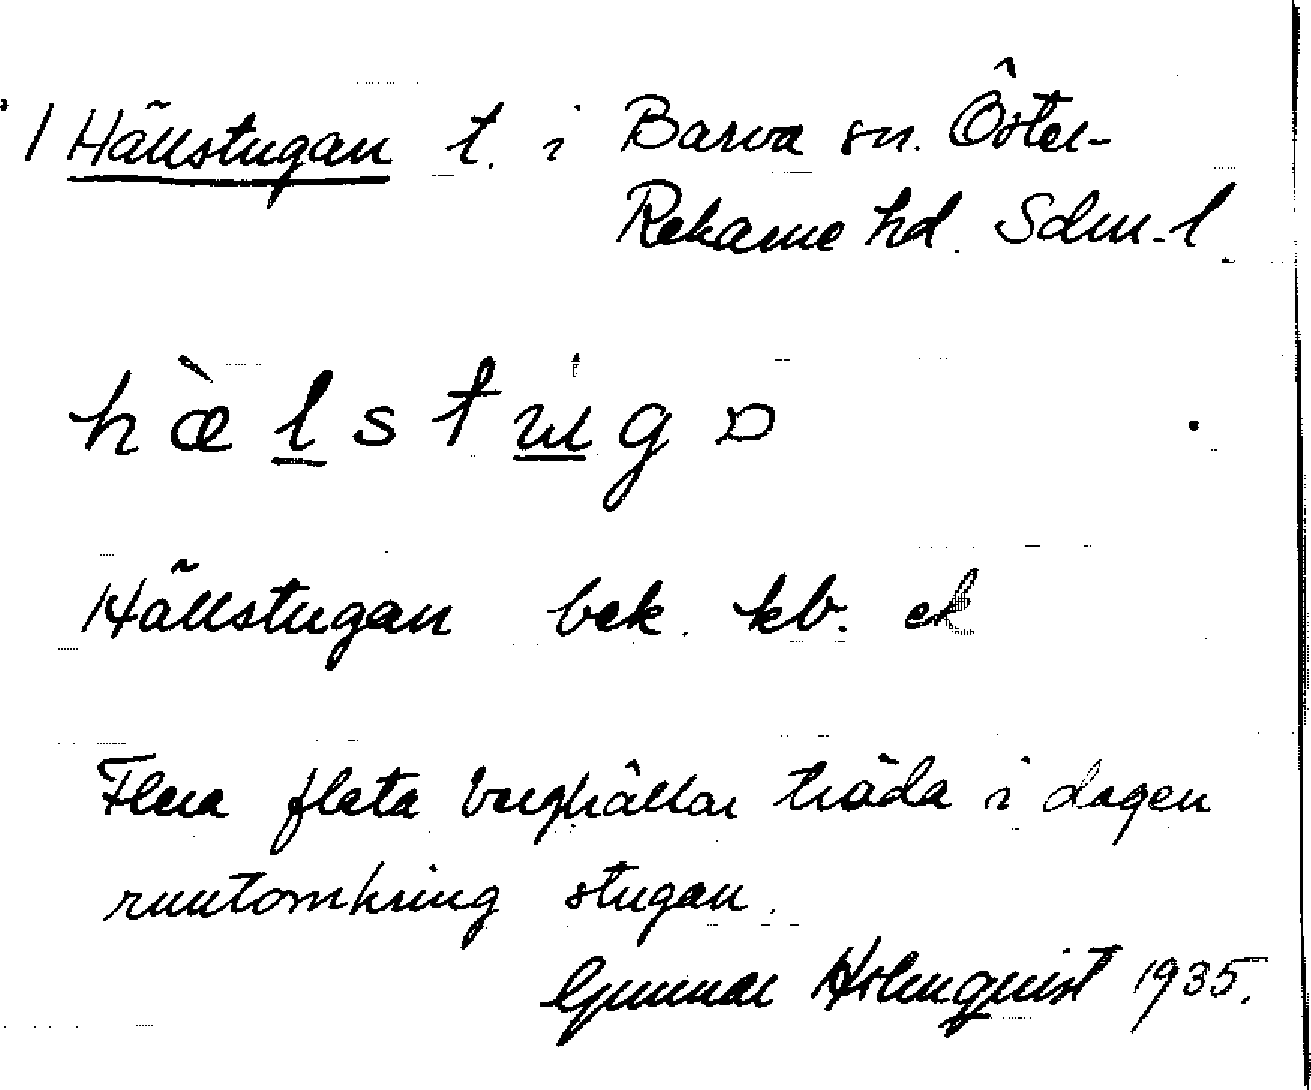 1 Hällstugan t. i Barva sn. Öster-
Rekarne hd. Sdm-l.
hæ̀lstug
Hällstugan bek. kb. ek
Flera flata berghällar träda i dagen
runtomkring stugan.
Gunnar Holmquist 1935.